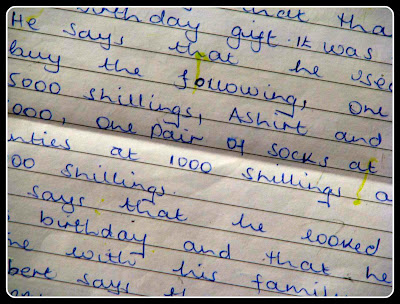 birthday that tha
He says birthday gift. It was
buy that he used
the following, one
5000 shillings, Ashirt and
000, one pair of socks at
nties at 1000 shillings a
00 shillings.
says that he looked
birthday and that he
ne with his famil
bert says